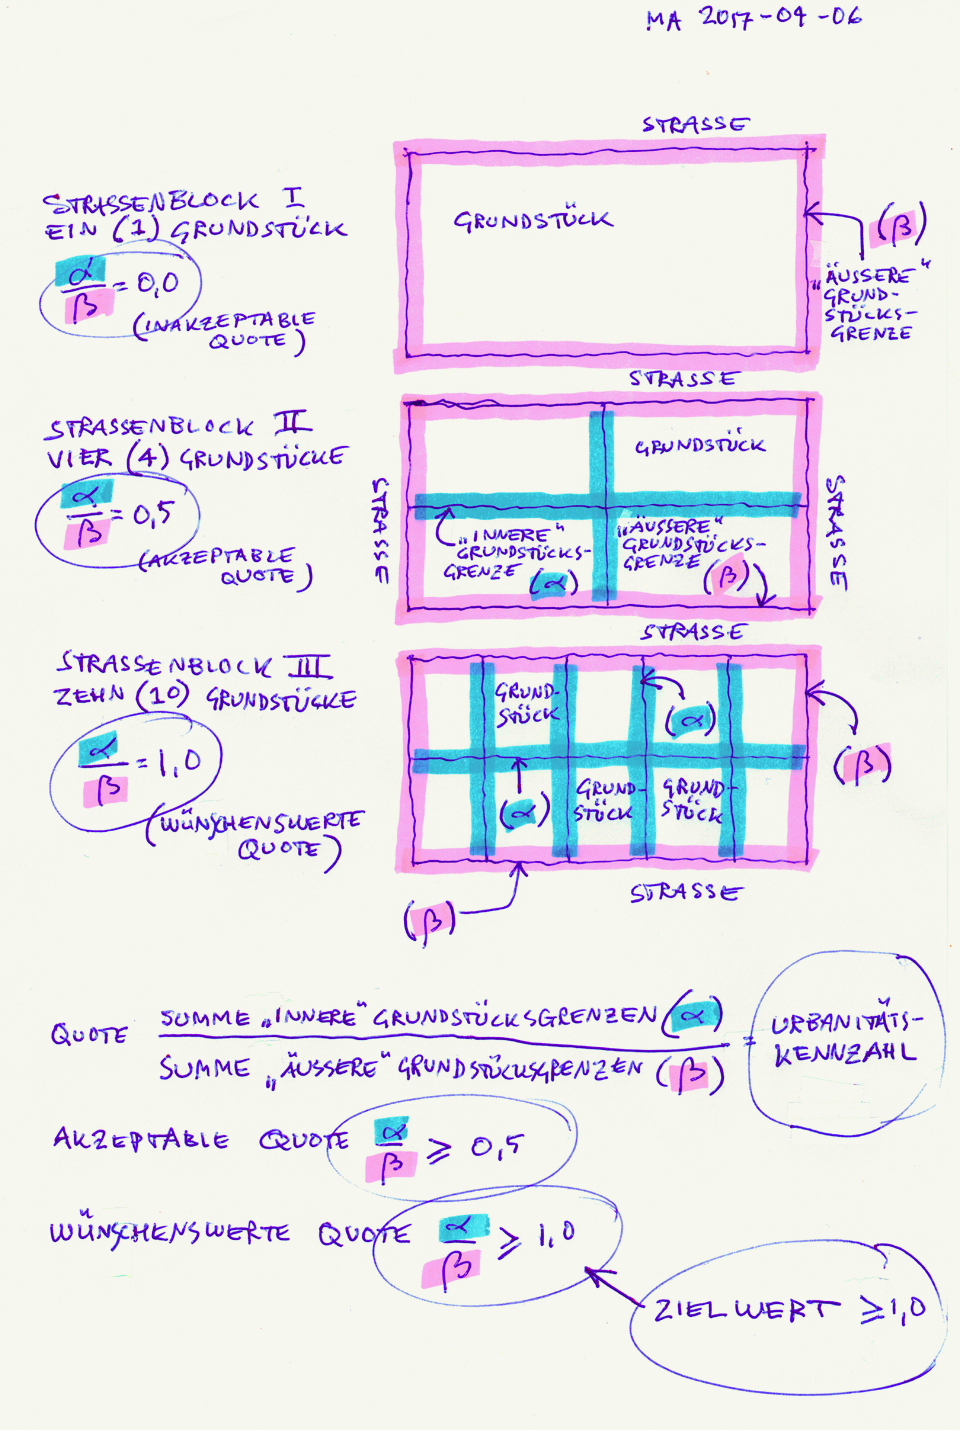 MA 2017-04-06
STRASSE
STRASSENBLOCK I
EIN (1) GRUNDSTÜCK
α/β = 0,0
(INAKZEPTABLE
QUOTE)
GRUNDSTÜCK
(β)
„ÄUSSERE“
GRUND-
STÜCKS-
GRENZE
STRASSE
STRASSENBLOCK II
VIER (4) GRUNDSTÜCKE
α/β = 0,5
(AKZEPTABLE
QUOTE)
STRASSE
GRUNDSTÜCK
„INNERE“
GRUNDSTÜCKS-
GRENZE (α)
„ÄUSSERE“
GRUNDSTÜCKS-
GRENZE (β)
STRASSE
STRASSE
STRASSENBLOCK III
ZEHN (10) GRUNDSTÜCKE
α/β = 1,0
(WÜNSCHENSWERTE
QUOTE)
GRUND-
STÜCK
(α)
(β)
(α)
GRUND-
STÜCK
GRUND-
STÜCK
STRASSE
(β)
QUOTE
SUMME „INNERE“ GRUNDSTÜCKSGRENZEN (α)
SUMME „ÄUSSERE“ GRUNDSTÜCKSGRENZEN (β)
= URBANITÄTS-
KENNZAHL
AKZEPTABLE QUOTE α/β ≥ 0,5
WÜNSCHENSWERTE QUOTE α/β ≥ 1,0
ZIELWERT ≥ 1,0